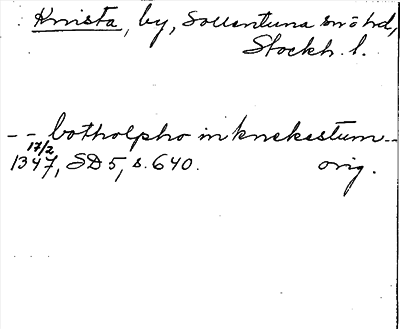 Knista, by, Sollentuna snöhd,
Stockh. l.
-- botholpho in knekestum --
17/2
1347, SD 5, s. 640. orig.